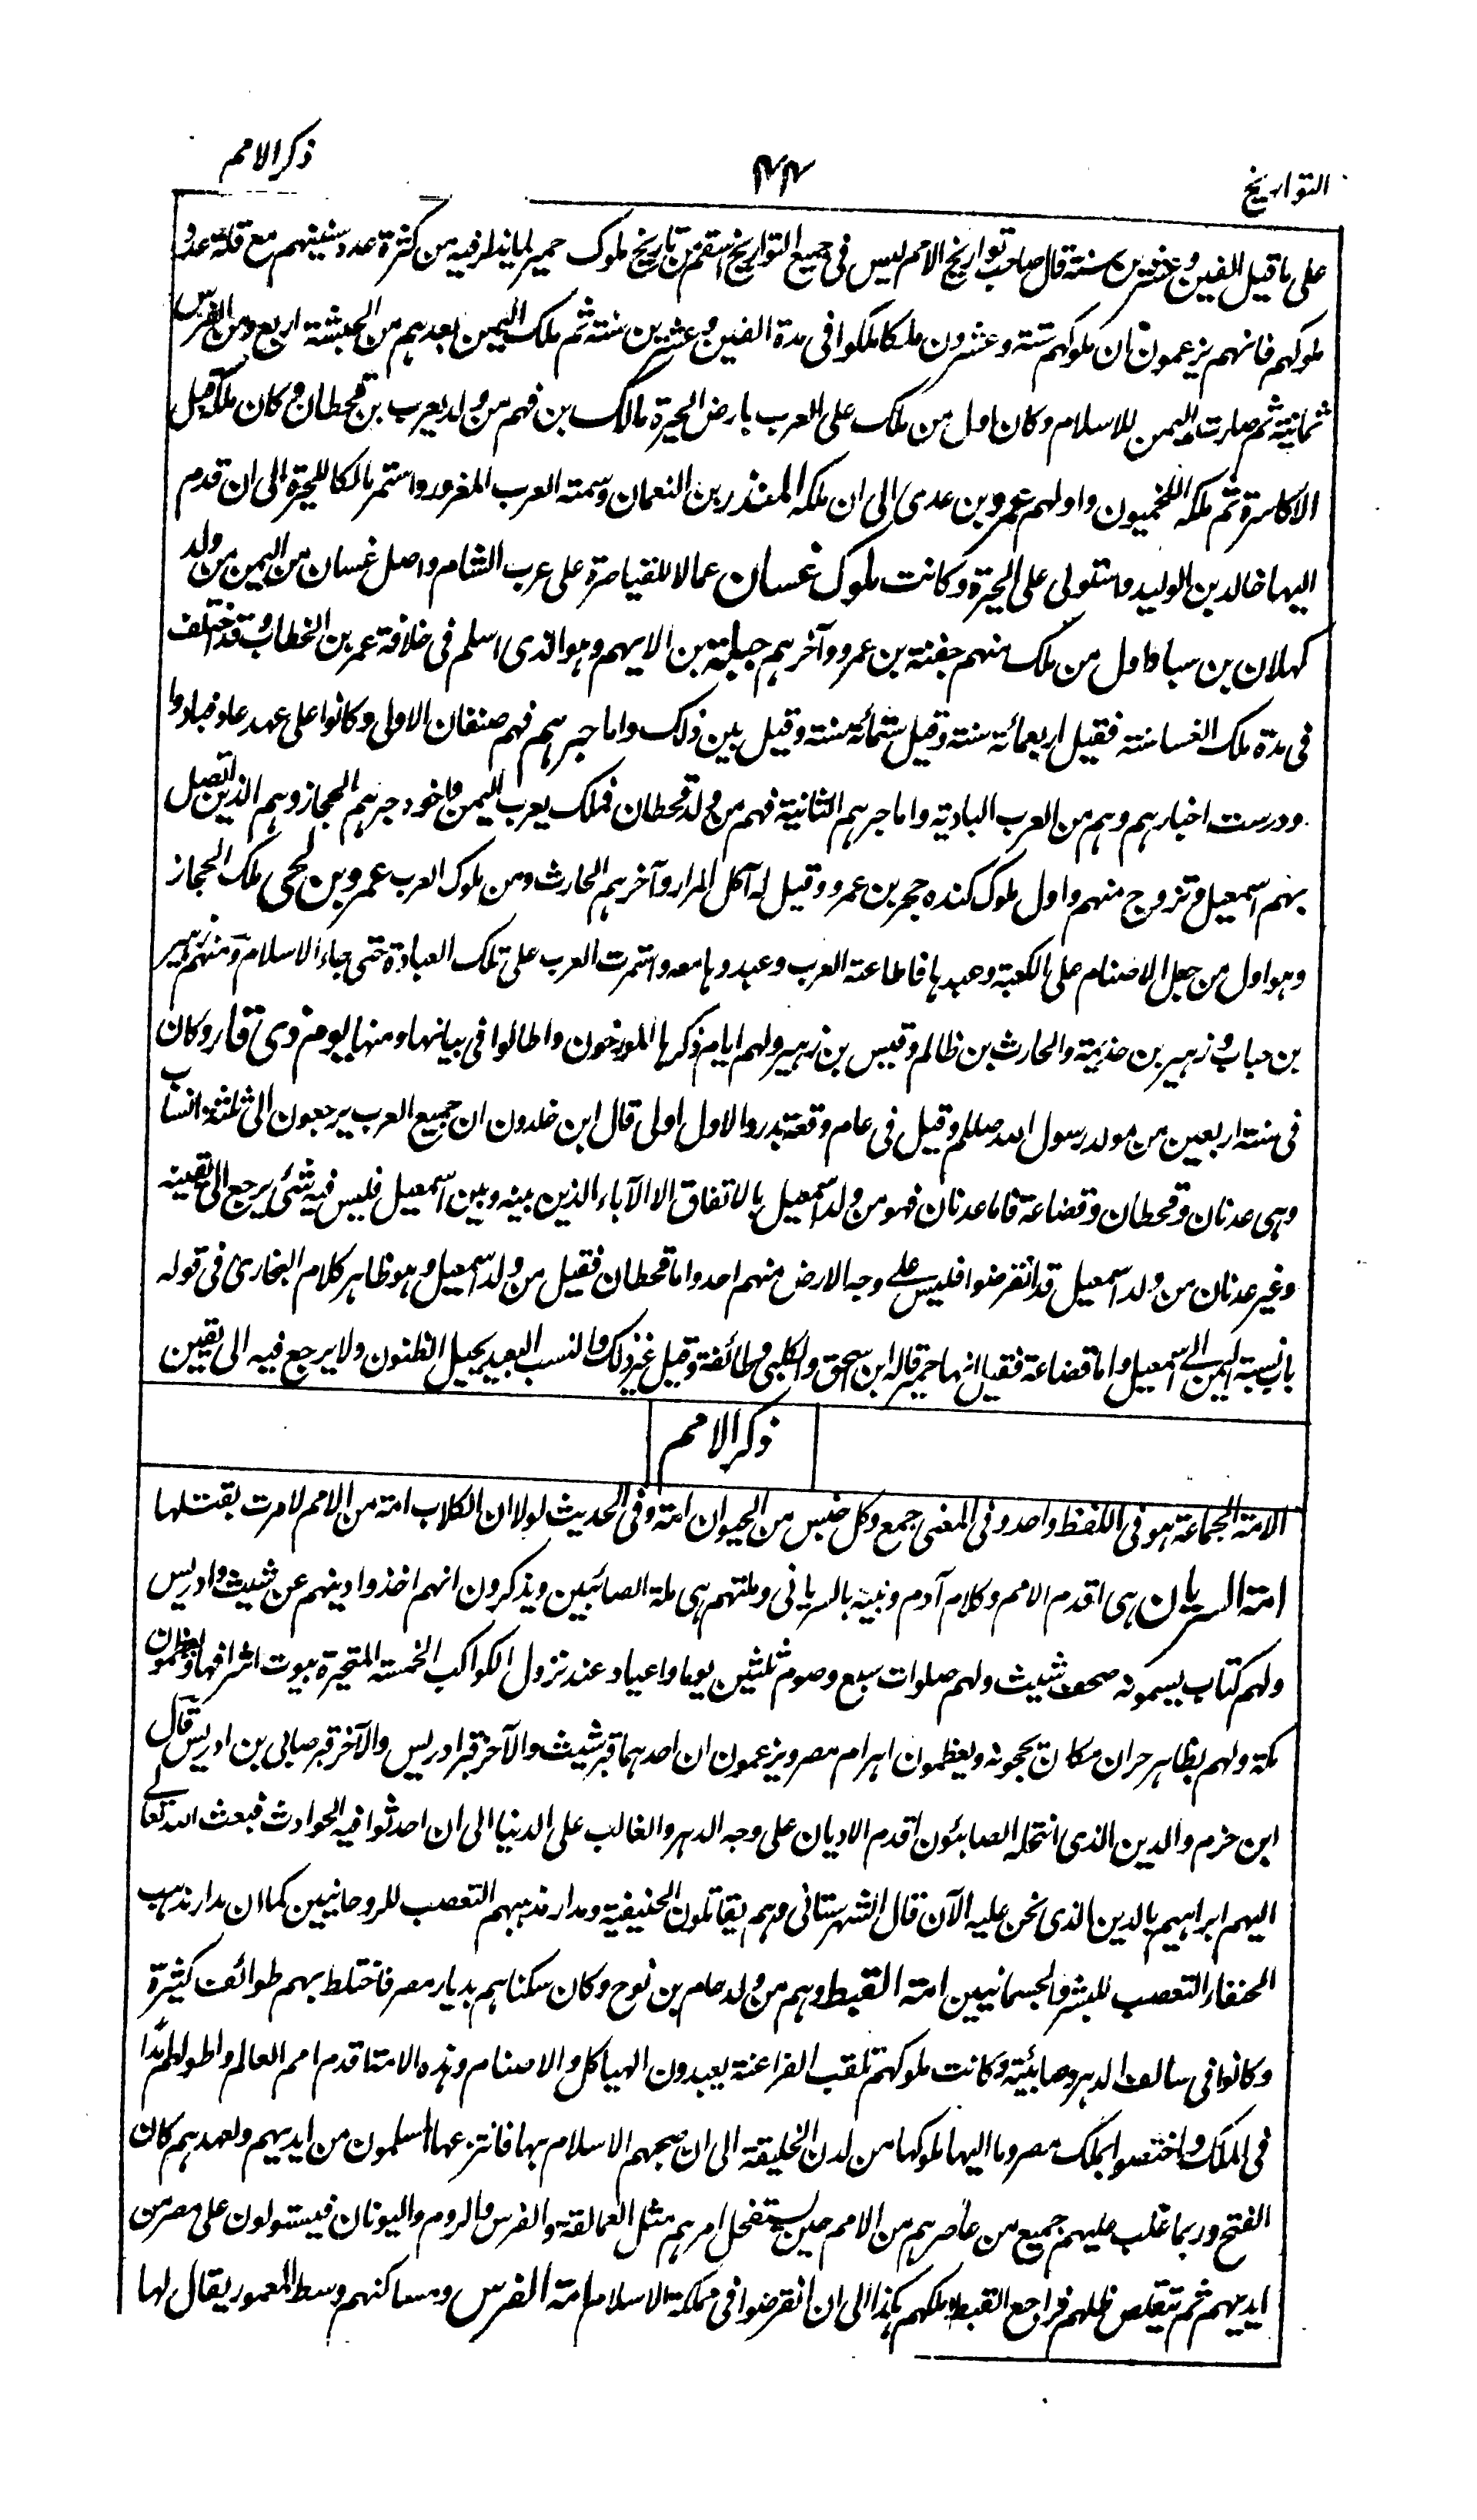 التواريخ ٤٤ ذكر الامم
على ما قيل الفين وعشرين سنة قال صاحب تواريخ الامم ليس فى جميع التواريخ اسقم من تاريخ ملوك حمير لما يذكر فيه من كثرة عدد سنينهم مع قلة عدد
ملوكهم فانهم يزعمون ان ملوكهم ستة وعشرون ملكا ملكوا فى مدة الفين وعشرين سنة ثم ملك اليمن بعدهم من الحبشة اربع ومن الفرس
ثمانية ثم صارت اليمن للاسلام وكان اول من ملك على العرب بارض الحيرة مالك بن فهم من ولد يعرب بن قحطان وكان ملكه قبل
الاكاسرة ثم ملكه اللخميون واولهم عمرو بن عدى الى ان ملكه المنذر بن النعمان وسمته العرب المغرور واستمر مالكا للحيرة الى ان قدم
اليها خالد بن الوليد واستولى على الحيرة وكانت ملوك غسان عمالا للقياصرة على عرب الشام واصل غسان من اليمن من ولد
كهلان بن سبا واول من ملك منهم جفنة بن عمرو وآخرهم جبلة بن الايهم وهو الذى اسلم فى خلافة عمر بن الخطاب وقد اختلف
فى مدة ملك الغساسنة فقيل اربعمائة سنة وقيل ستمائة سنة وقيل بين ذلك واما جرهم فهم صنفان الاولى وكانوا على عهد عاد فبادوا
ودرست اخبارهم وهم من العرب البادية واما جرهم الثانية فهم من ولد قحطان فملك يعرب اليمن واخوه جرهم الحجاز وهم الذين اتصل
بهم اسمعيل وتزوج منهم واول ملوك كنده حجر بن عمرو وقيل له آكل المرار وآخرهم الحارث ومن ملوك العرب عمرو بن لحى ملك الحجاز
وهو اول من جعل الاصنام على الكعبة وعبدها فاطاعته العرب وعبدوها معه واستمرت العرب على تلك العبادة حتى جاء الاسلام ومنهم زهير
بن حباب وزهير بن جذيمة والحارث بن ظالم وقيس بن زهير ولهم ايام ذكرها المورخون واطالوا فى بيانها ومنها يوم ذى قار وكان
فى سنة اربعين من مولد رسول الله صللم وقيل فى عام وقعة بدر والاول اولى قال ابن خلدون ان جميع العرب يرجعون الى ثلثة انساب
وهى عدنان وقحطان وقضاعة فاما عدنان فهو من ولد اسمعيل بالاتفاق الا الآباء الذين بينه وبين اسمعيل فليس فيه شئ يرجع الى يقينه
وغير عدنان من ولد اسمعيل قد انقرضوا فليس على وجه الارض منهم احد واما قحطان فقيل من ولد اسمعيل وهو ظاهر كلام البخارى فى قوله
باب نسبة اليمن الى اسمعيل واما قضاعة فقيل انها حمير قاله ابن اسحق والكلبى وطائفة وقيل غير ذلك والنسب البعيد يحيل الظنون ولا يرجع فيه الى يقين
ذكر الامم
الامة الجماعة هو فى اللفظ واحد وفى المعنى جمع وكل جنس من الحيوان امة وفى الحديث لولا ان الكلاب امة من الامم لامرت بقتلها
امة السريان هى اقدم الامم وكلام آدم وبنيه بالسريانى وملتهم هى ملة الصائبين ويذكرون انهم اخذوا دينهم عن شيث وادريس
ولهم كتاب يسمونه صحف شيث ولهم صلوات سبع وصوم ثلثين يوما واعياد عند نزول الكواكب الخمسة المتحيرة بيوت اشرافها ويعظمون
مكة ولهم بظاهر حران مكان يحجونه ويعظمون اهرام مصر ويزعمون ان احدهما قبر شيث والآخر قبر ادريس والآخر قبر صابى بن ادريس قال
ابن حزم والدين الذى انتحله الصابئون اقدم الاديان على وجه الدهر والغالب على الدنيا الى ان احدثوا فيه الحوادث فبعث الله تعالى
اليهم ابراهيم بالدين الذى نحن عليه الآن قال الشهرستانى وهم يقاتلون الحنيفية ومدار مذهبهم التعصب للروحانيين كما ان مدار مذهب
الحنفاء التعصب للبشر والجسمانيين امة القبط وهم من ولد حام بن نوح وكان سكناهم بديار مصر فاختلط بهم طوائف كثيرة
وكانوا فى سالف الدهر صابئية وكانت ملوكهم تلقب الفراعنة يعبدون الهياكل والاصنام وهذه الامة اقدم امم العالم واطولهم مدا
فى الملك واختصوا بملك مصر وما اليها ملوكها من لدن الخليقة الى ان صبحهم الاسلام بها فانتزعها المسلمون من ايديهم ولعهدهم كان
الفتح وربما غلب عليهم جميع من عاصرهم من الامم حين يستفحل امرهم مثل العمالقة والفرس والروم واليونان فيستولون على مصر من
ايديهم ثم يتقلص ظلهم فراجع القبط ملكهم هكذا الى ان انقرضوا فى مملكة الاسلام امة الفرس ومساكنهم وسط المعمور يقال لها